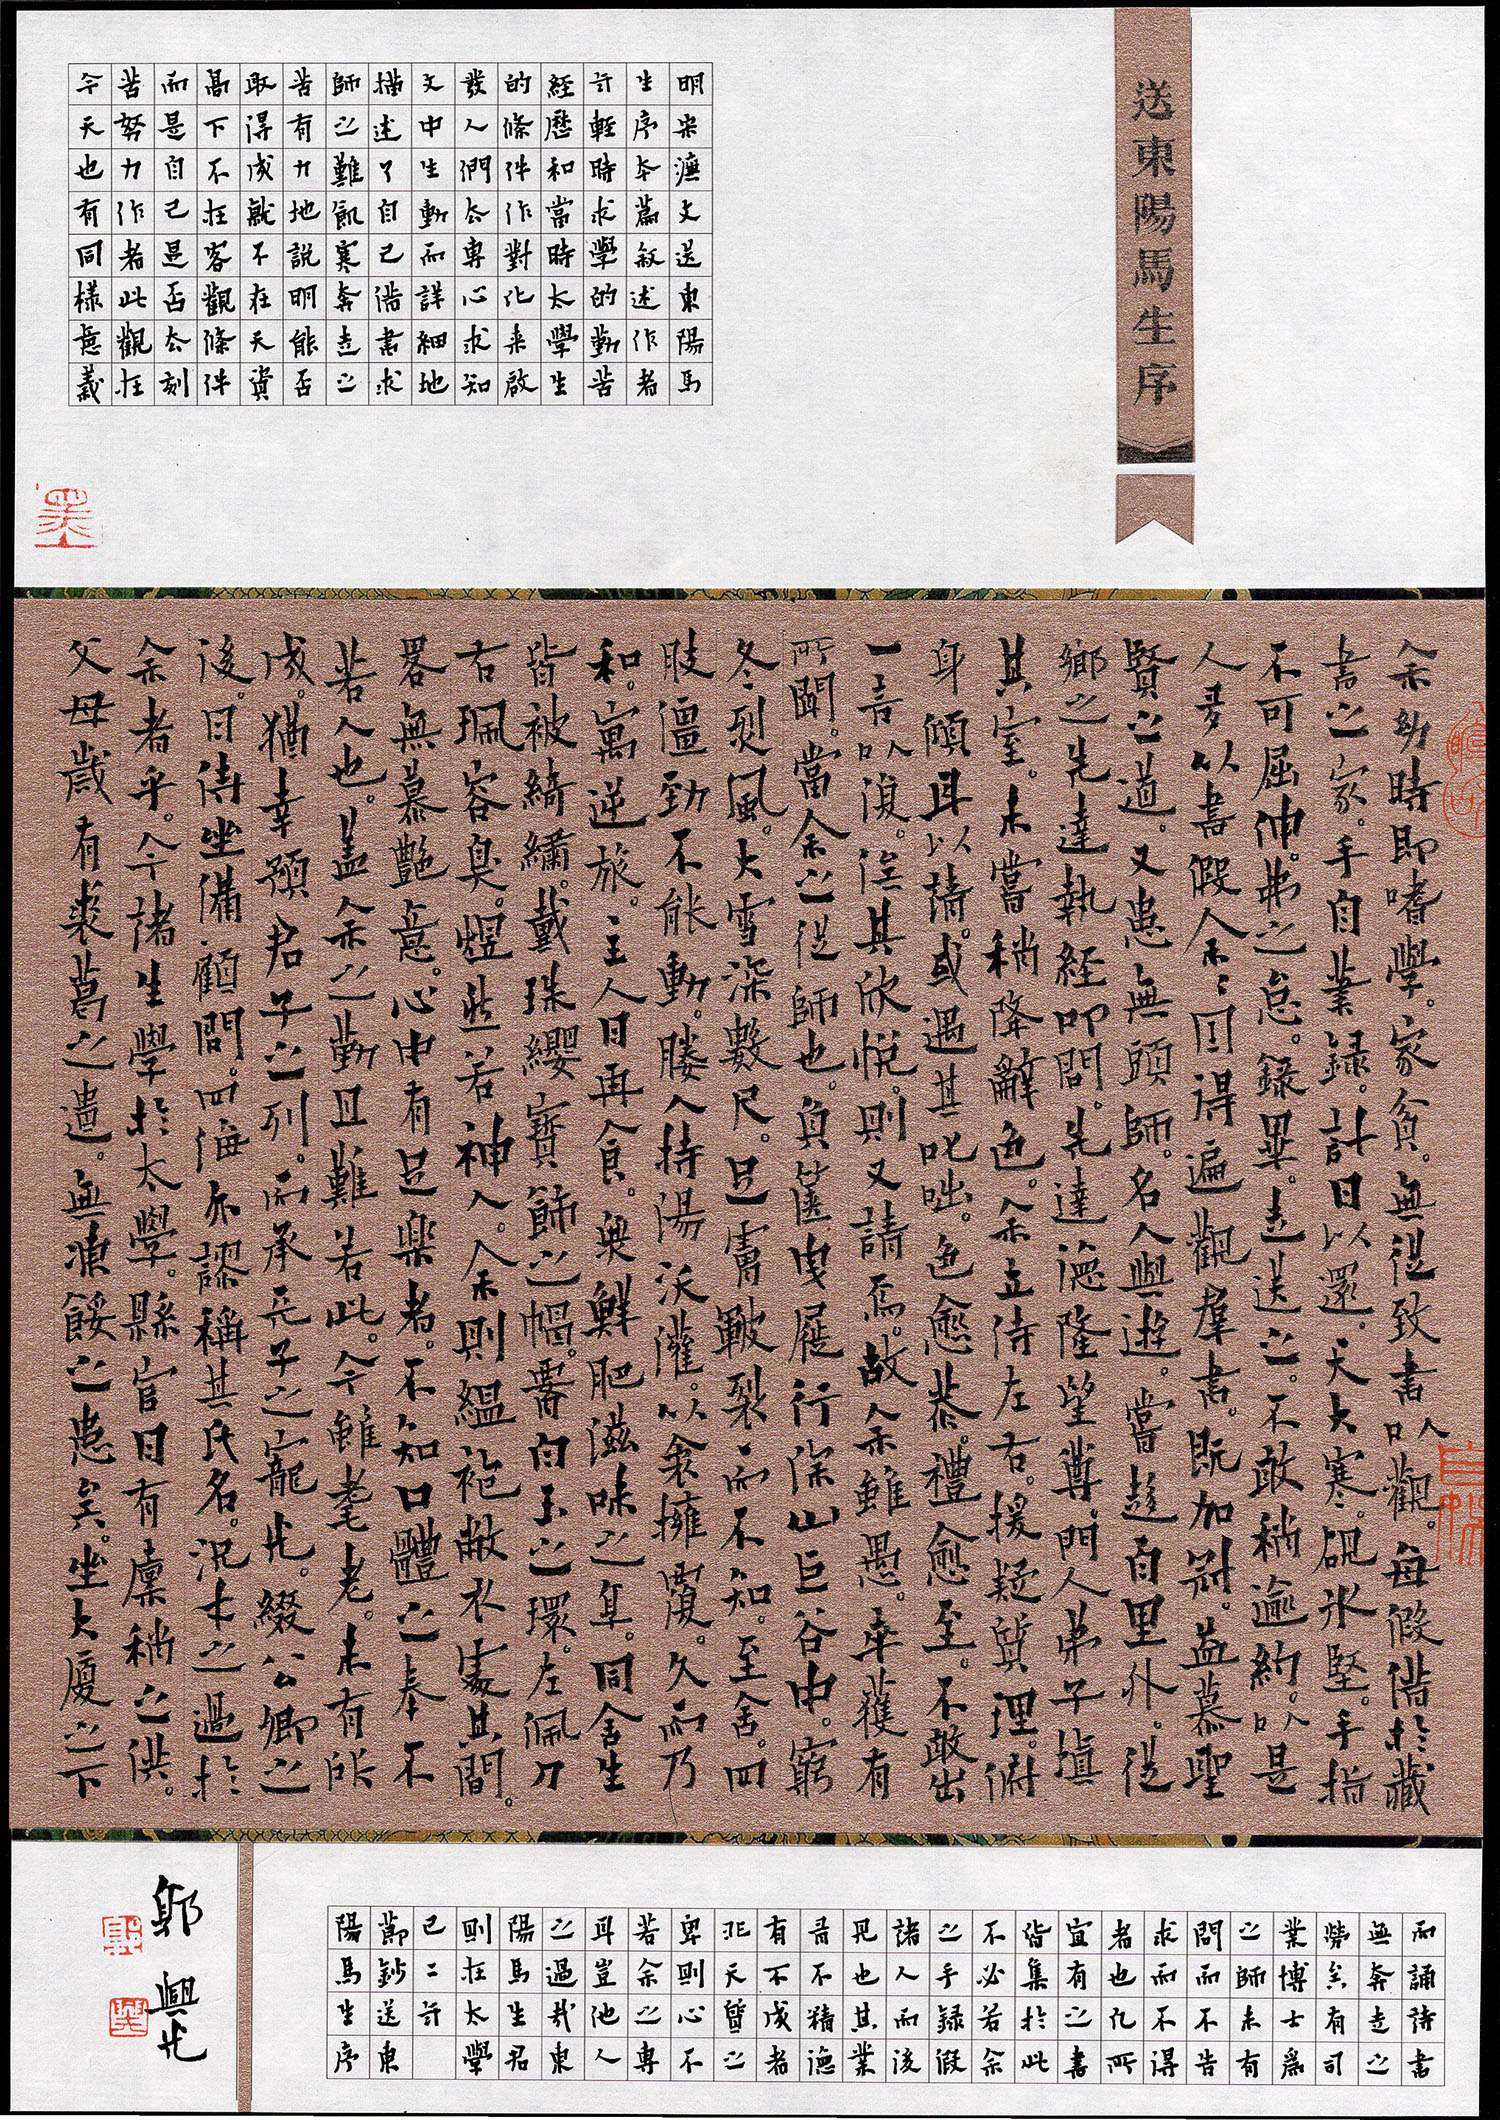 送東陽馬生序
明宋濂文送東陽馬
生序本篇敘述作者
年輕時求學的勤苦
經歷和當時太學生
的條件作對比來啟
發人們去專心求知
文中生動而詳細地
描述了自己借書求
師之難飢寒奔走之
苦有力地說明能否
取得成就不在天資
高下不在客觀條件
而是自己是否去刻
苦努力作者此觀在
今天也有同樣意義
余幼時即嗜學。家貧。無從致書以觀。每假借於藏
書之家。手自筆錄。計日以還。天大寒。硯冰堅。手指
不可屈伸。弗之怠。錄畢。走送之。不敢稍逾約。以是
人多以書假余。余因得遍觀羣書。既加冠。益慕聖
賢之道。又患無碩師。名人與遊。嘗趨百里外。從
鄉之先達執經叩問。先達德隆望尊。門人弟子填
其室。未嘗稍降辭色。余立侍左右。援疑質理。俯
身傾耳以請。或遇其叱咄。色愈恭。禮愈至。不敢出
一言以復。俟其欣悅。則又請焉。故余雖愚。卒獲有
所聞。當余之從師也。負篋曳屣行深山巨谷中。窮
冬烈風。大雪深數尺。足膚皸裂而不知。至舍。四
肢僵勁不能動。媵人持湯沃灌。以衾擁覆。久而乃
和。寓逆旅。主人日再食。無鮮肥滋味之享。同舍生
皆被綺繡。戴珠纓寶飾之帽。腰白玉之環。左佩刀
右珮容臭。煜然若神人。余則縕袍敝衣處其間。
畧無慕艷意。心中有足樂者。不知口體之奉不
若人也。蓋余之勤且難若此。今雖耄老。未有所
成。猶幸預君子之列。而承天子之寵光。綴公卿之
後。日侍坐備顧問。四海亦謬稱其氏名。況才之過於
余者乎。今諸生學於太學。縣官日有廩稍之供。
父母歲有裘葛之遺。無凍餒之患矣。坐大廈之下
而誦詩書
無奔走之
勞矣有司
業博士爲
之師未有
問而不告
求而不得
者也凡所
宜有之書
皆集於此
不必若余
之手録假
諸人而後
見也其業
有不精德
有不成者
非天質之
卑則心不
若余之專
耳豈他人
之過哉東
陽馬生君
則在太學
已二年
節鈔送東
陽馬生序
郭興光